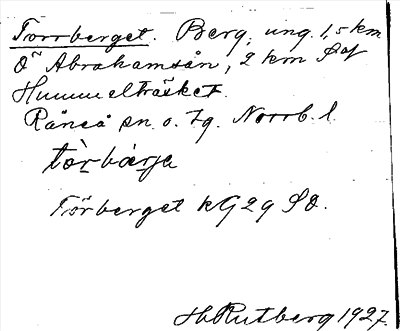 Torrberget. Berg, ung. 1,5 km
Ö Abrahamsån, 2 km S of
Hummelträsket.
Råneå sn. o. tg. Norrb. l.
tòrbærja
Törberget kG29 SO.
H. Rutberg 1927.